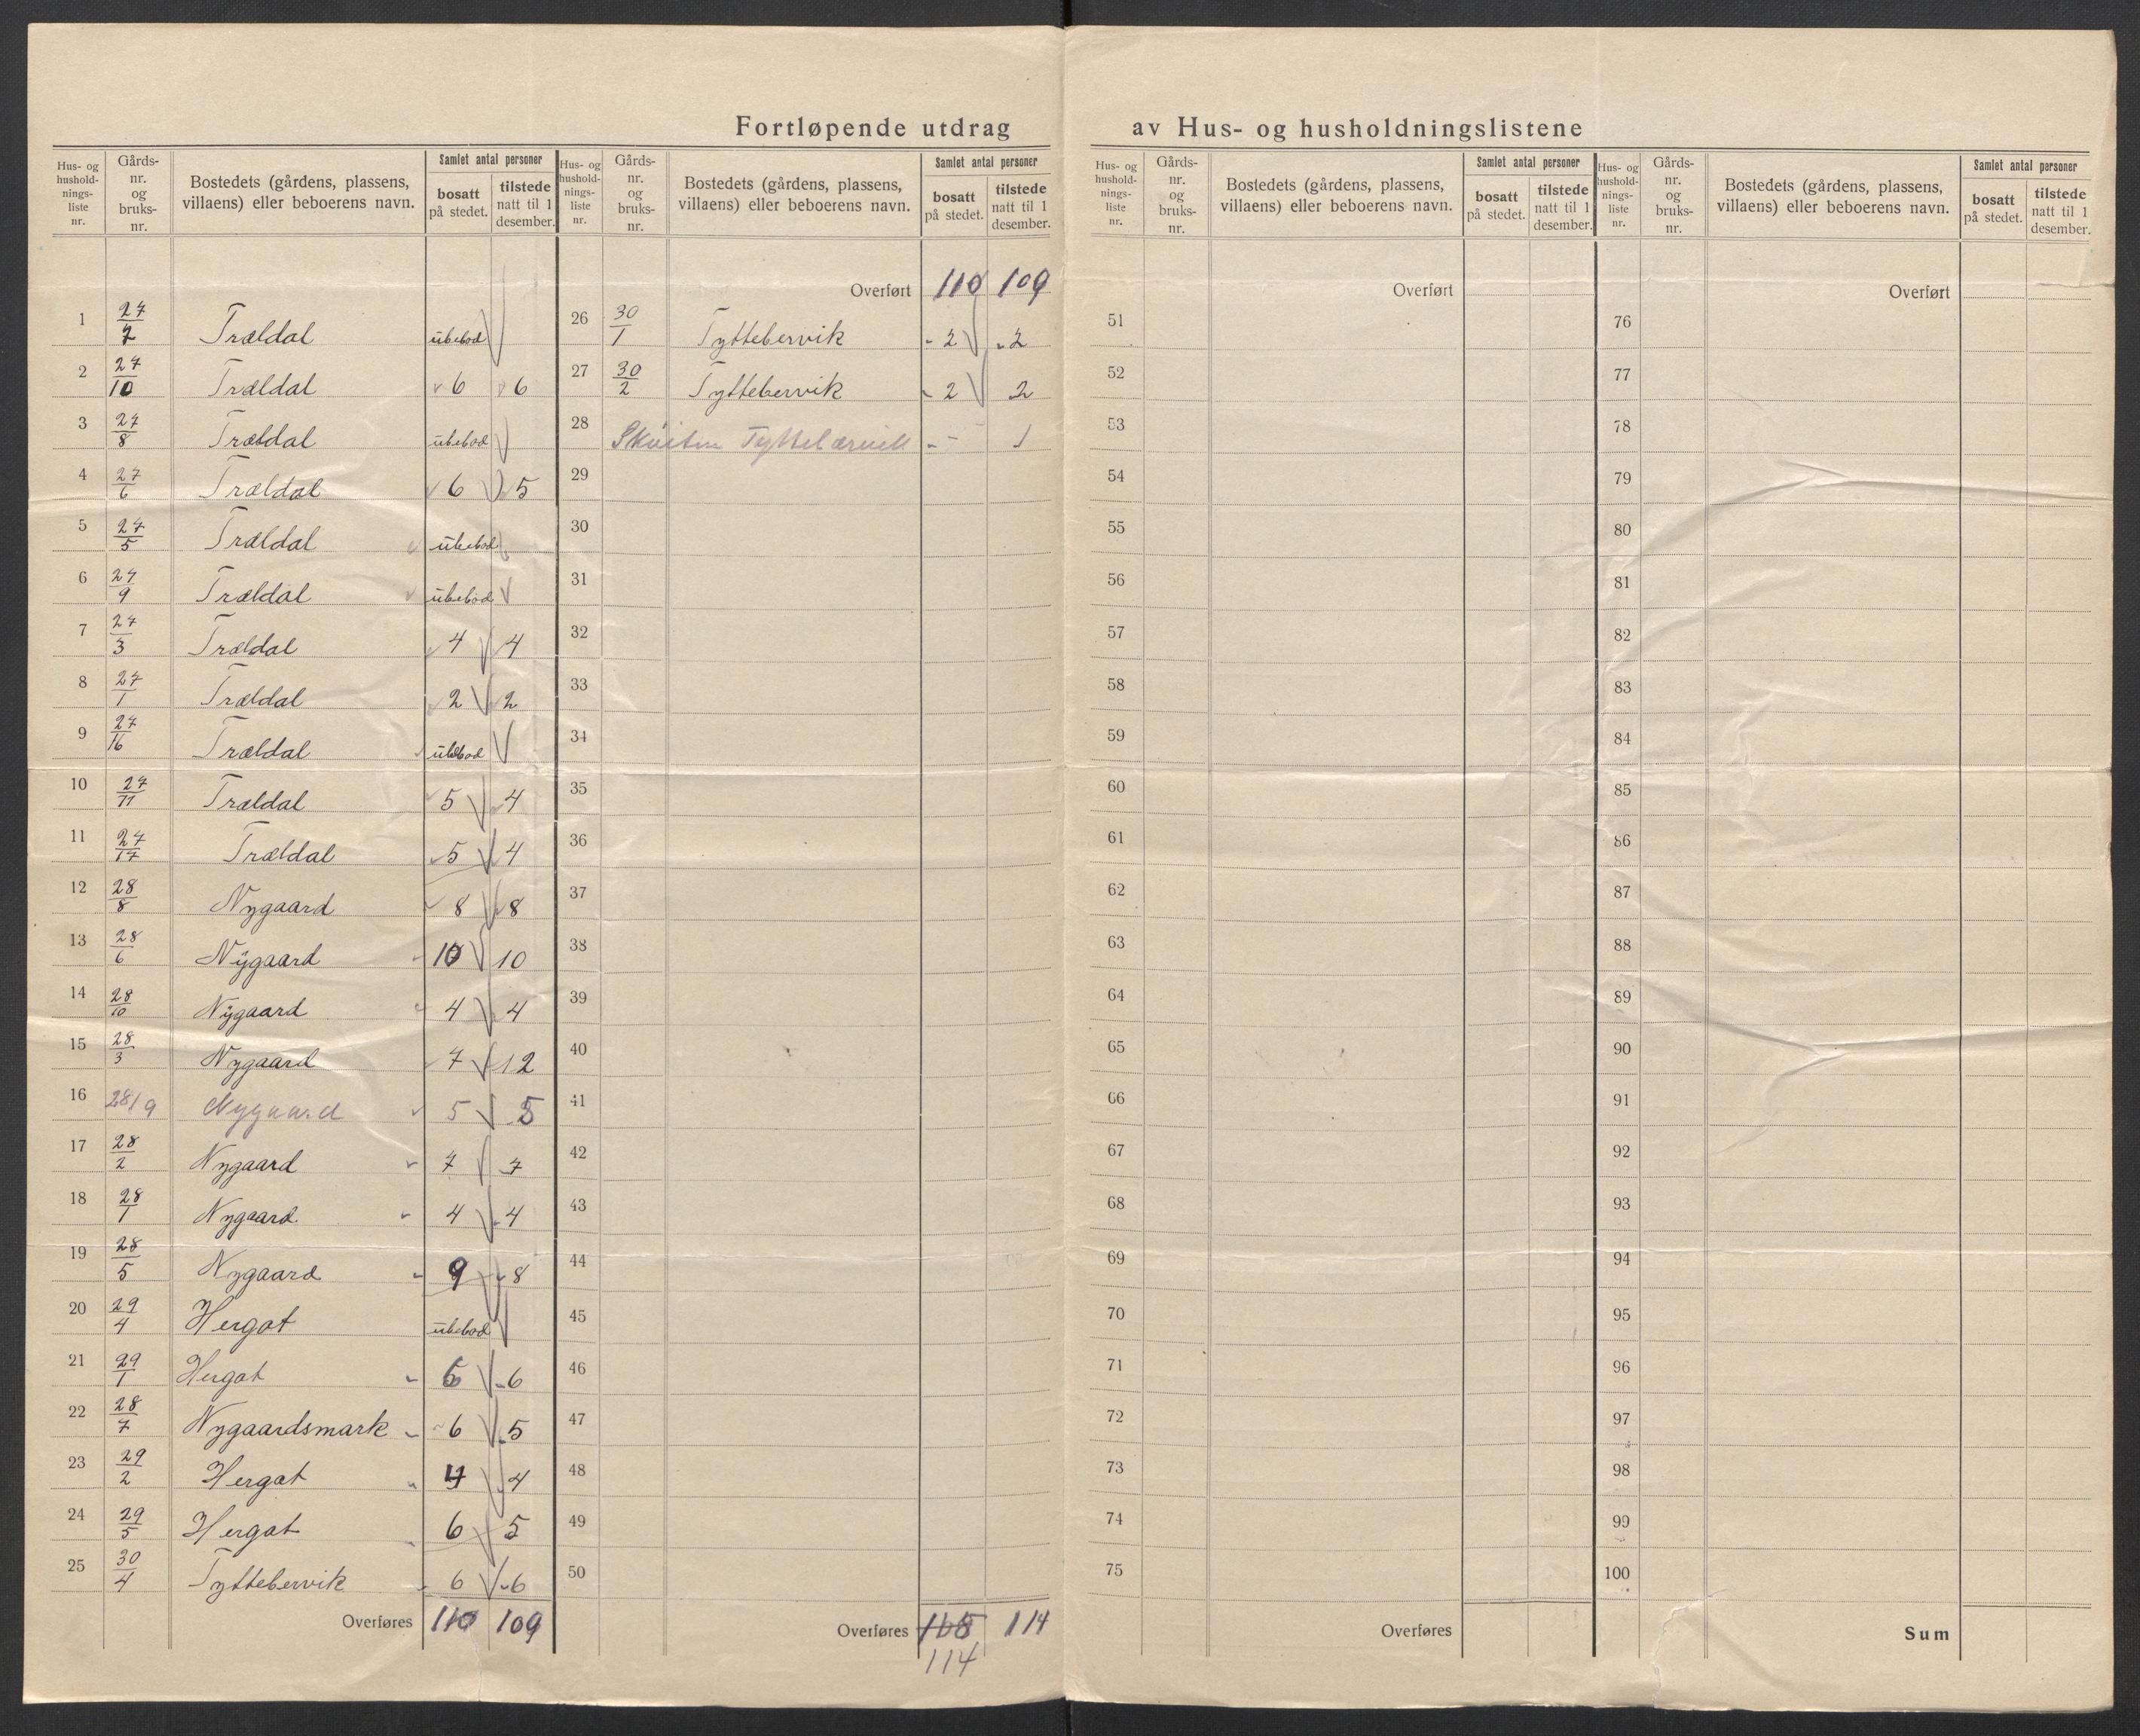 Fortløpende utdrag av Hus- og husholdningslistene
Hus- og hushold-nings-liste nr. | Gårds-nr. og bruks-nr. | Bostedets (gårdens, plassens, villaens) eller beboerens navn. | Samlet antal personer | bosatt på stedet. | tilstede natt til 1 desember.
1 | 27/7 | Trældal | übebod
2 | 27/10 | Trældal | 6 | 6
3 | 27/8 | Trældal | übebod
4 | 27/6 | Trældal | 6 | 5
5 | 27/5 | Trældal | übebod
6 | 27/9 | Trældal | übebod
7 | 27/3 | Trældal | 4 | 4
8 | 27/1 | Trældal | 2 | 2
9 | 27/16 | Trældal | übebod
10 | 27/11 | Trældal | 5 | 4
11 | 27/17 | Trældal | 5 | 4
12 | 28/8 | Nygaard | 8 | 8
13 | 28/6 | Nÿgaard | 10 | 10
14 | 28/10 | Nÿgaard | 4 | 4
15 | 28/3 | Nygaard | 7 | 12
16 | 28/9 | Nygaard | 5 | 5
17 | 28/2 | Nygaard | 7 | 7
18 | 28/1 | Nygaard | 4 | 4
19 | 28/5 | Nygaard | 9 | 8
20 | 29/4 | Hergot | übebod
21 | 29/1 | Hergot | 6 | 6
22 | 28/7 | Nygaardsmark | 6 | 5
23 | 29/2 | Hergot | 4 | 4
24 | 29/5 | Hergot | 6 | 5
25 | 30/4 | Tyttebervik | 6 | 6
Overføres | 110 | 109
Hus- og hushold-nings-liste nr. | Gårds-nr. og bruks-nr. | Bostedets (gårdens, plassens, villaens) eller beboerens navn. | Samlet antal personer | bosatt på stedet. | tilstede natt til 1 desember.
Overført | 110 | 109
26 | 30/1 | Tyttebervik | 2 | 2
27 | 30/2 | Tyttebervik | 2 | 2
28 | - | 1
29
30
31
32
33
34
35
36
37
38
39
40
41
42
43
44
45
46
47
48
49
50
Overføres | 114
114
Hus- og hushold-nings-liste nr. | Gårds-nr. og bruks-nr. | Bostedets (gårdens, plassens, villaens) eller beboerens navn. | Samlet antal personer | bosatt på stedet. | tilstede natt til 1 desember.
Overført
51
52
53
54
55
56
57
58
59
60
61
62
63
64
65
66
67
68
69
70
71
72
73
74
75
Overføres
Hus- og hushold-nings-liste nr. | Gårds-nr. og bruks-nr. | Bostedets (gårdens, plassens, villaens) eller beboerens navn. | Samlet antal personer | bosatt på stedet. | tilstede natt til 1 desember.
Overført
76
77
78
79
80
81
82
83
84
85
86
87
88
89
90
91
92
93
94
95
96
97
98
99
100
Sum